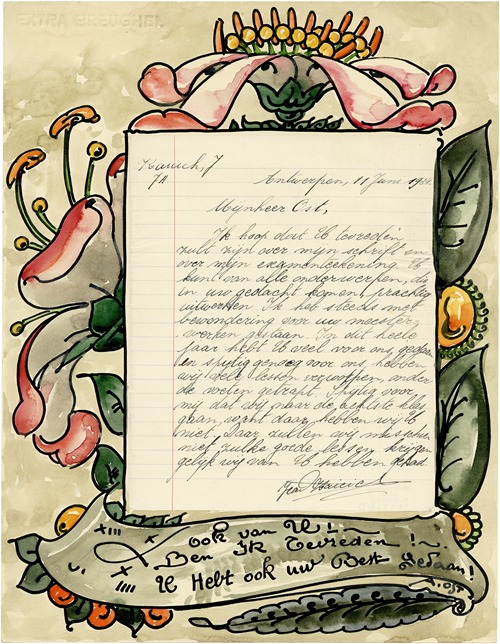 EXTRA BREUGHEL
Antwerpen, 11 Juni
Mijnheer Ost,
Ik hoop dat U tevreden
zult zijn over mijn schrift en
over mijn examenteekening. U
kunt van alle onderwerpen, die
in uw gedacht komen, prachtig
uitwerken. Ik heb steeds met
bewondering voor uw meester-
werken gestaan. In dit heele
jaar hebt U veel voor ons gedaan
en spijtig genoeg voor ons, hebben
wij vele lessen verworpen, onder
de voeten getrapt. Spijtig voor
mij dat wij naar de achtste klas
gaan, want daar hebben wij U
niet. Daar zullen wij misschien
niet zulke goede lessen krijgen
gelijk wij van U hebben gehad
ook van U!
Ben Ik Tevreden!
U Hebt ook uw Best Gedaan!
A. Ost